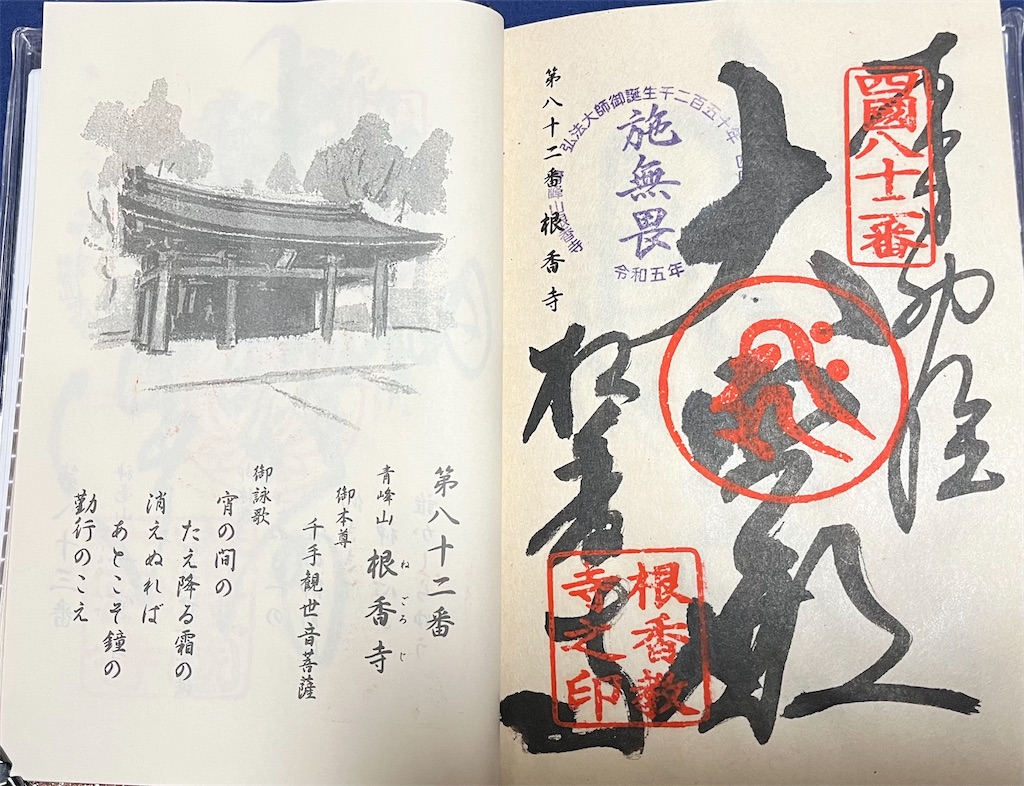 奉納経
四國八十二番
大悲殿
弘法大師御誕生千二百五十年
施無畏
令和五年
峰山根香寺
第八十二番 根香寺
根香寺
根香教
寺之印
第八十二番
青峰山 根香寺
ねごろじ
御本尊
千手観世音菩薩
御詠歌
宵の間の
たえ降る霜の
消えぬれば
あとこそ鐘の
勤行のこえ